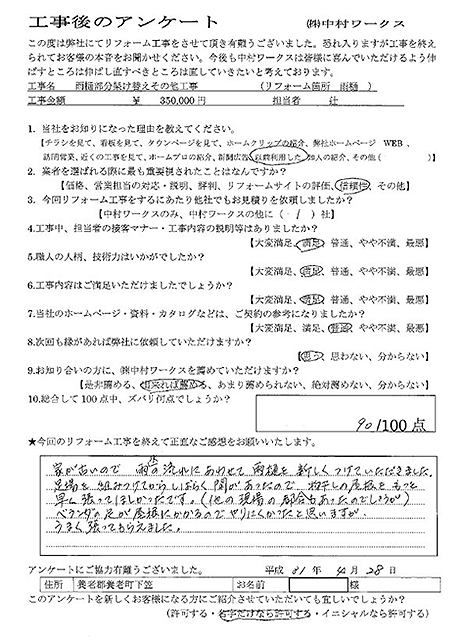 工事後のアンケート
㈱中村ワークス
この度は弊社にてリフォーム工事をさせて頂き有難うございました。恐れ入りますが工事を終え
られてお客様の本音をお聞かせください。今後も中村ワークスは皆様に喜んでいただけるよう伸
ばすところは伸ばし直すべきところは直していきたいと考えております。
工事名 雨樋部分架け替えその他工事 (リフォーム箇所 雨樋 )
工事金額 ¥ 350,000円 担当者 辻
1. 当社をお知りになった理由を教えてください。
【チラシを見て、看板を見て、タウンページを見て、ホームクリップの紹介、弊社ホームページ WEB、
訪問営業、近くの工事を見て、ホームプロの紹介、新聞広告、以前利用した、知人の紹介、その他( )】
2. 業者を選ばれる際に最も重要視されたことはなんですか?
【価格、営業担当の対応・説明、評判、リフォームサイトの評価、信頼性、その他】
3. 今回リフォーム工事をするにあたり他社でもお見積りを依頼しましたか?
【中村ワークスのみ、中村ワークスの他に( / )社】
4.工事中、担当者の接客マナー・工事内容の説明等はありましたか?
【大変満足、満足、普通、やや不満、最悪】
5.職人の人柄、技術力はいかがでしたか?
【大変満足、満足、普通、やや不満、最悪】
6.工事内容はご満足いただけましたでしょうか?
【大変満足、満足、普通、やや不満、最悪】
7.当社のホームページ・資料・カタログなどは、ご契約の参考になりましたか?
【大変満足、満足、普通、やや不満、最悪】
8.次回も縁があれば弊社に依頼していただけますか?
【思う、思わない、分からない】
9.お知り合いの方に、㈱中村ワークスを薦めていただけますか?
【是非薦める、出来れば薦める、あまり薦められない、絶対薦めない、分からない】
10.総合して100点中、ズバリ何点でしょうか?
90/100点
★今回のリフォーム工事を終えて正直なご感想をお願いいたします。
家が古いので 雨水の流れにあわせて 雨樋を新しくつけていただきました。
足場を組みつけてからしばらく間があったので 波トタンの屋根をもっと
早く張ってほしかったです。(他の現場の都合もあったのでしょうが)
ベランダの足が屋根にかかるので やりにくかったと思いますが
うまく張ってもらえました。
アンケートにご協力有難うございました。 平成 31年 4月 28日
住所 養老郡養老町下笠 お名前 様
このアンケートを新しくお客様になる方にご紹介させていただいても宜しいでしょうか?
(許可する・名字だけなら許可する・イニシャルなら許可する)